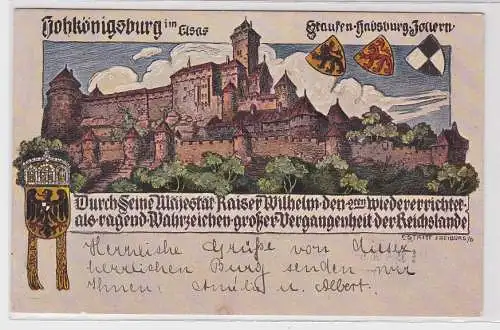 Hohkönigsburg im Elsas
Staufen-Habsburg-Zollern
Durch Seine Majestät Kaiser Wilhelm den 2ten wiedererrichtet
als ragend Wahrzeichen großer Vergangenheit der Reichslande
C. STRITT FREIBURG i/B
Herzliche Grüße von dieser
herrlichen Burg senden wir
Ihnen: Amelie u. Albert.